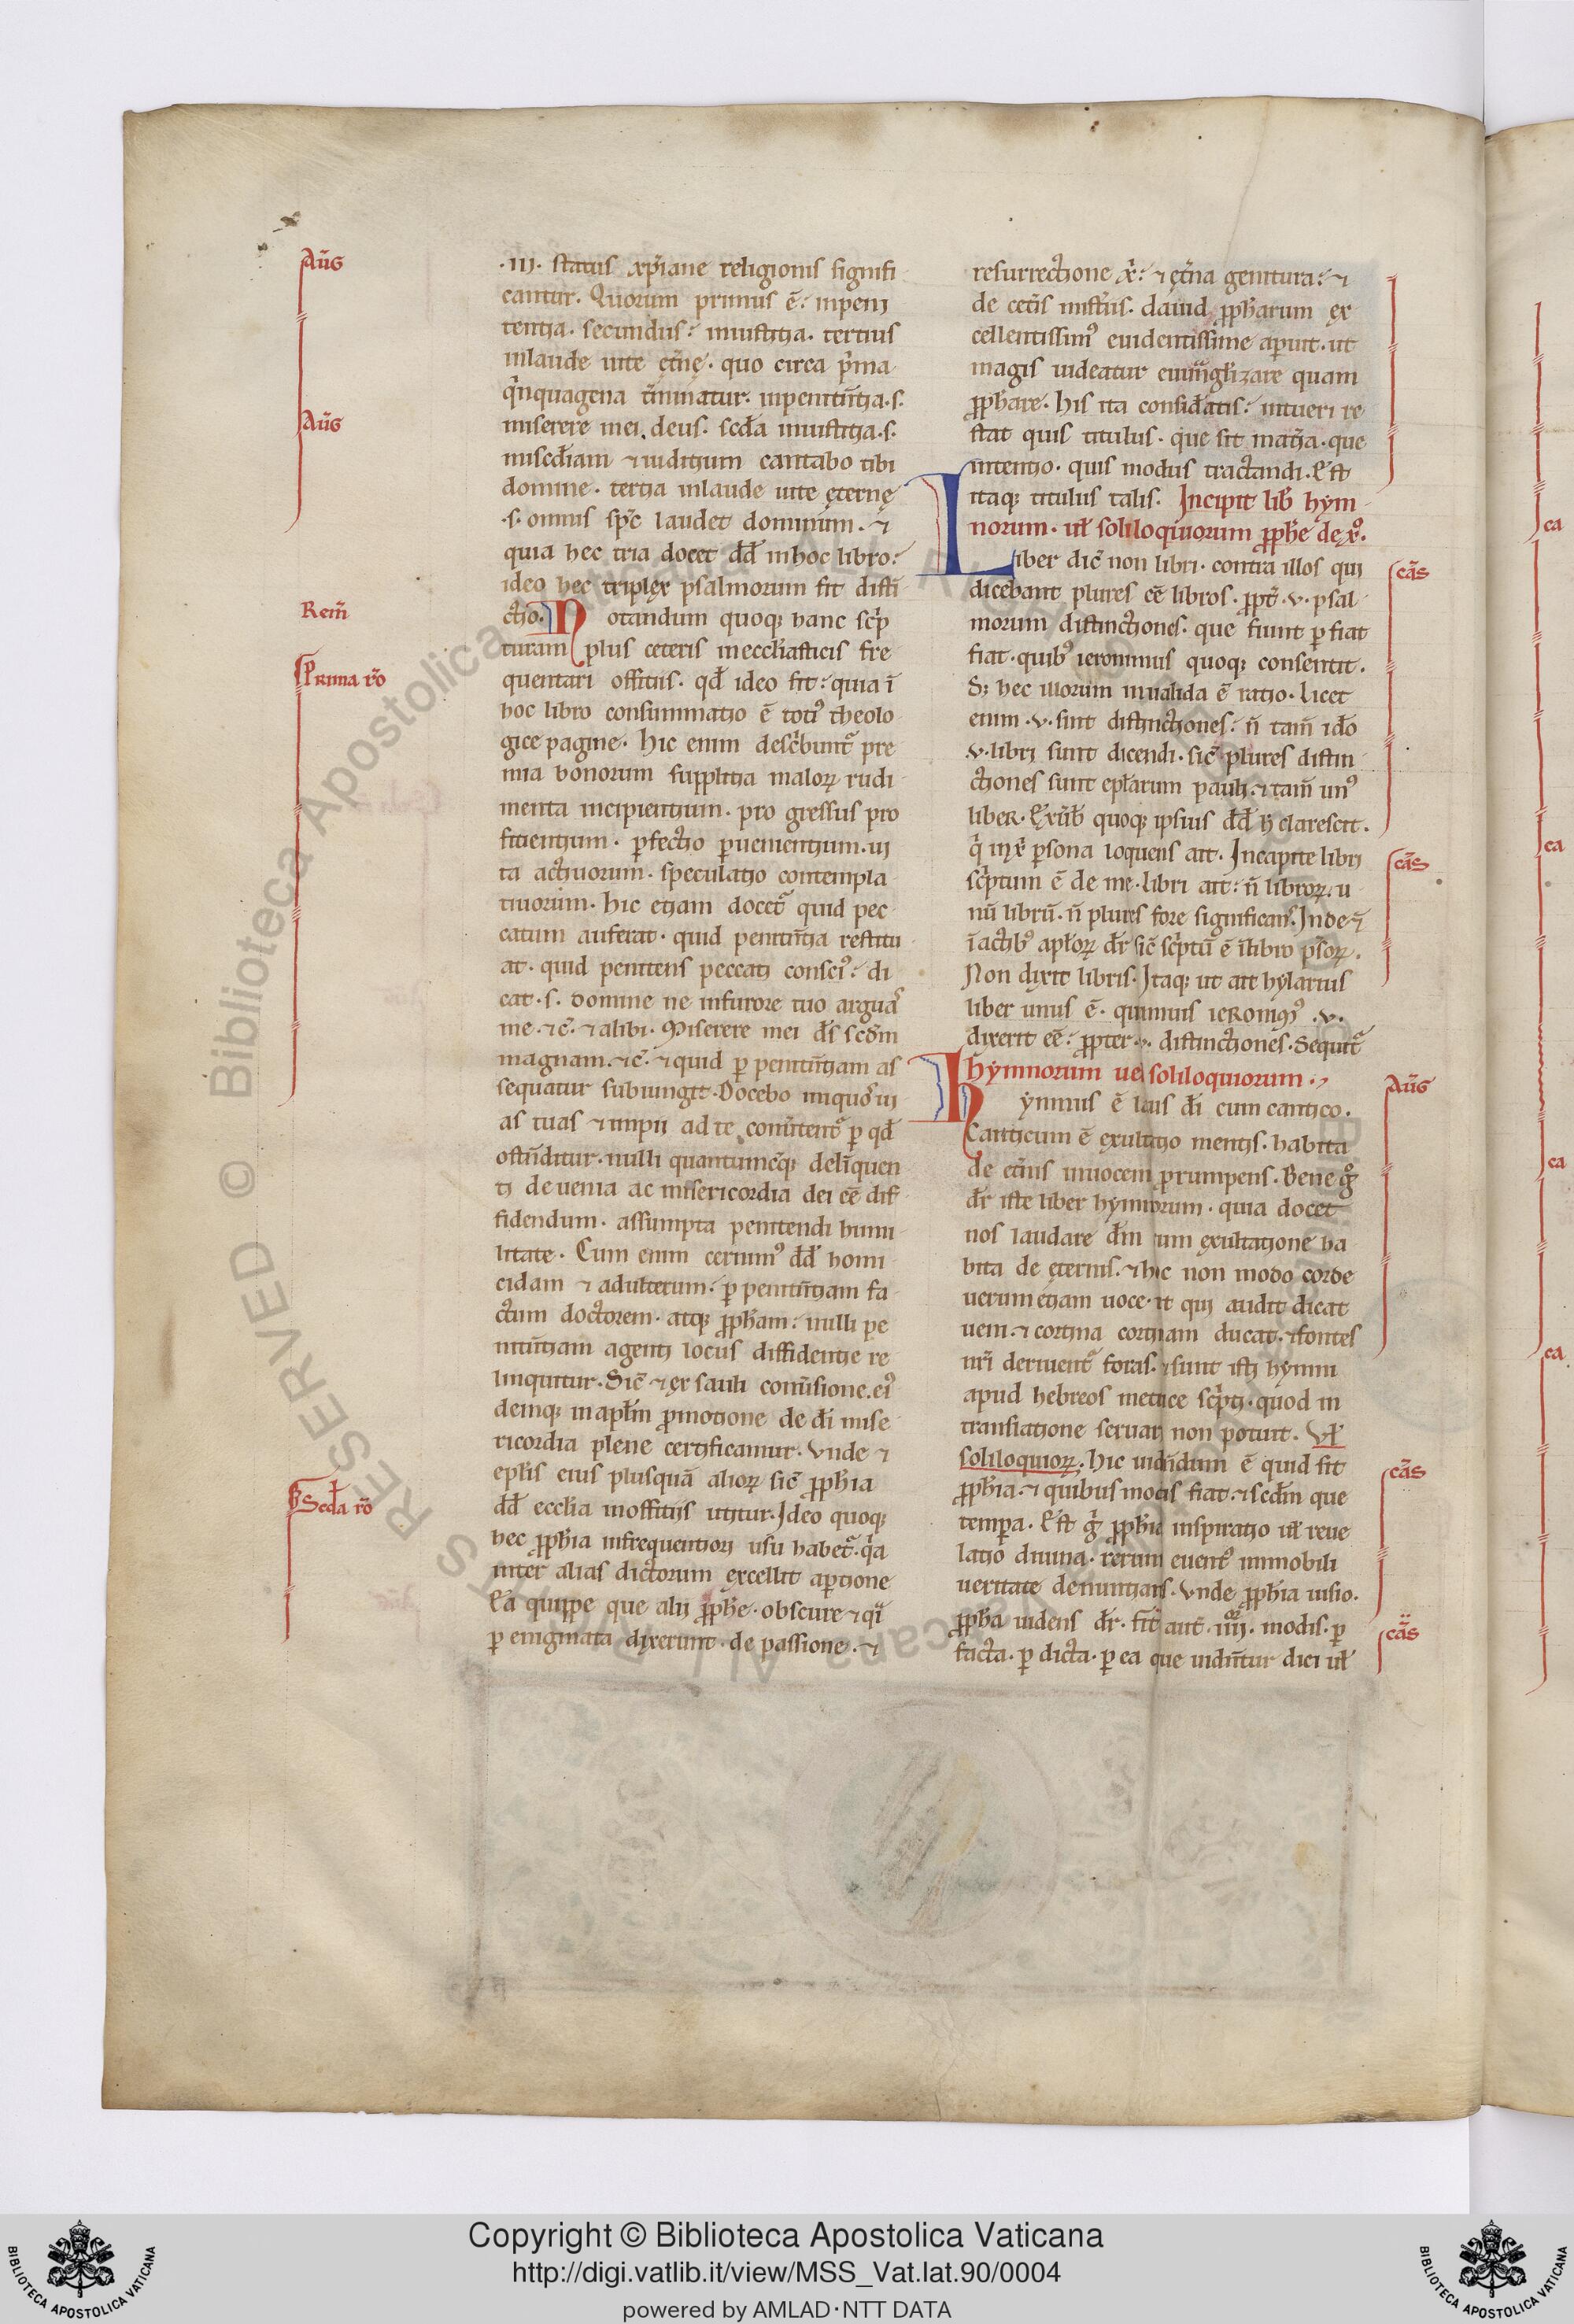 Aug̅
Aug̅
Rem̅
Prima ro̅
Scd̅a ro̅
·III· status xp̅iane religionis signifi
cantur. Quorum primus e̅: inpeni
tentia. secundus: iniustitia. tertius
inlaude uite et̅nę. quo circa p̅ma
q̅nquagena t̅minatur. inpenitn̅tia.s.
miserere mei deus. scd̅a iniustitia.s.
misc̅diam ⁊iuditium cantabo tibi
domine. tertia inlaude uite ęternę
.s. omnis sp̅c laudet dominum. ⁊
quia hec tria docet dd̅ inhoc libro:
ideo hec triplex psalmorum fit disti̅
ctio. Notandum quoq; hanc sc̅p
turam plus ceteris inecclīasticis fre
quentari offitiis. qd̅ ideo fit: quia i̅
hoc libro consummatio e̅ toti᾽ theolo
gice pagine. Hic enim desc̅bunt᷑ pre
mia bonorum supplitia maloꝝ rudi
menta incipientium. pro gressus pro
fitientium. ꝑfectio ꝑuenientium. ui
ta actiuorum. speculatio contempla
tiuorum. hic etiam docet᷑ quid pec
catum auferat. quid penitn̅tia restitu
at. quid penitens peccati consci᾽: di
cat.s. domine ne infurore tuo arguas
me.⁊c̅. ⁊alibi. Miserere mei ds̅ scd̅m
magnam.⁊c̅. ⁊quid ꝑ penitn̅tiam as
sequatur subiungit. Docebo iniquos ui
as tuas ⁊impii ad te conu̅tent᷑ ꝑ qd̅
ostn̅ditur. nulli quantumcūq; deli̅quen
ti de uenia ac misericordia dei ee̅ dif
fidendum. assumpta penitendi humi
litate. Cum enim cernim᾽ dd̅ homi
cidam ⁊ adulterum: ꝑ penitn̅tiam fa
ctum doctorem. atq; ꝓph̅am: nulli pe
nitn̅tiam agenti locus diffidentie re
linquitur. Sic̅ ⁊ex sauli conu̅sione. ei᾽
demq; inapl̅m ꝓmotione de di̅ mise
ricordia plene certificamur. Vnde ⁊
epl̅is eius plusqua̅ alioꝝ sic̅ ꝓph̅ia
dd̅ ecclia inoffitiis utitur. Ideo quoq;
hec ꝓph̅ia infrequentiori usu habet᷑. q̅a
inter alias dictorum excellit aꝑtione
Ea̅ quippe que alii ꝓph̅e. obscure ⁊q̅i
ꝑ enigmata dixerunt. de passione. ⁊
resurrectione x̅: ⁊ et̅na genitura: ⁊
de cet̅is mist̅iis. dauid ꝓph̅arum ex
cellentissim᾽ euidentissime aꝑuit. ut
magis uideatur euu̅ngl̅izare quam
ꝓph̅are. His ita consid̅atis: intueri re
stat quis titulus. que sit mat̅ia. que
intentio. quis modus tractandi. Est
itaq; titulus talis. Incipit lib̅ hym
norum. ul̅ soliloquiorum ꝓph̅e de x̅o.
Liber dic̅ non libri. contra illos qui
dicebant plures ee̅ libros. ꝓpt̅. v. psal
morum distinctiones. que fiunt ꝑ fiat
fiat. quib᾽ ieronimus quoq; consentit.
S; hec illorum inualida e̅ ratio. Licet
enim .v. sint distinctiones: n̅ tam̅ id̅o
v. libri sunt dicendi. sic̅ plures distin
ctiones sunt epl̅arum pauli. ⁊tam̅ un᾽
liber. Ex u̅b̅ quoq; ipsius dd̅ h̅ clarescit.
q̅ inx̅ ꝑsona loquens ait. Incapite libri
sc̅ptum e̅ de me. libri ait: n̅ libroꝝ. u
nu̅ libru̅. n̅ plures fore significans. Inde ⁊
i̅actib᾽ apl̅oꝝ dr̅ sic̅ sc̅ptu̅ e̅ i̅libro ps̅oꝝ.
Non dixit libris. Itaq; ut ait hylarius
liber unus e̅. quamuis ieronim᾽ .v.
dixerit ee̅: ꝓpter .v. distinctiones. Sequit᷑
hymnorum uel soliloquiorum.
hymnus e̅ laus di̅ cum cantico.
Canticum e̅ exultatio mentis. habita
de et̅nis inuocem ꝓrumpens. Bene g̊
dr̅ iste liber hymnorum. quia docet
nos laudare dm̅ cum exultatione ha
bita de ęternis. ⁊hic non modo corde
uerum etiam uoce. ut qui audit dicat
ueni. ⁊ cortina cortinam ducat. ⁊fontes
nr̅i deriuent᷑ foras. ⁊sunt isti hymni
apud hebreos metrice sc̅pti. quod in
translatione seruari non potuit. Vl̅
soliloquioꝝ. Hic uidn̅dum e̅ quid sit
ꝓph̅ia. ⁊ quibus modis fiat. ⁊scd̅m que
tempa. Est g̅ ꝓph̅ia inspiratio ul̅ reue
latio diuina. rerum euent᾽ inmobili
ueritate denuntians. Vnde ꝓph̅ia uisio.
ꝓph̅a uidens dr̅. fit aut̅ iiii. modis. ꝑ
facta. ꝑ dicta. ꝑ ea que uidn̅tur dici ul̅
ca̅s
ca̅s
Aug̅
ca̅s
ca̅s
ca
ca
ca
ca
© Biblioteca Apostolica Vaticana ALL RIGHTS RESERVED
Copyright © Biblioteca Apostolica Vaticana
http://digi.vatlib.it/view/MSS_Vat.lat.90/0004
powered by AMLAD·NTT DATA
BIBLIOTECA APOSTOLICA VATICANA
BIBLIOTECA APOSTOLICA VATICANA